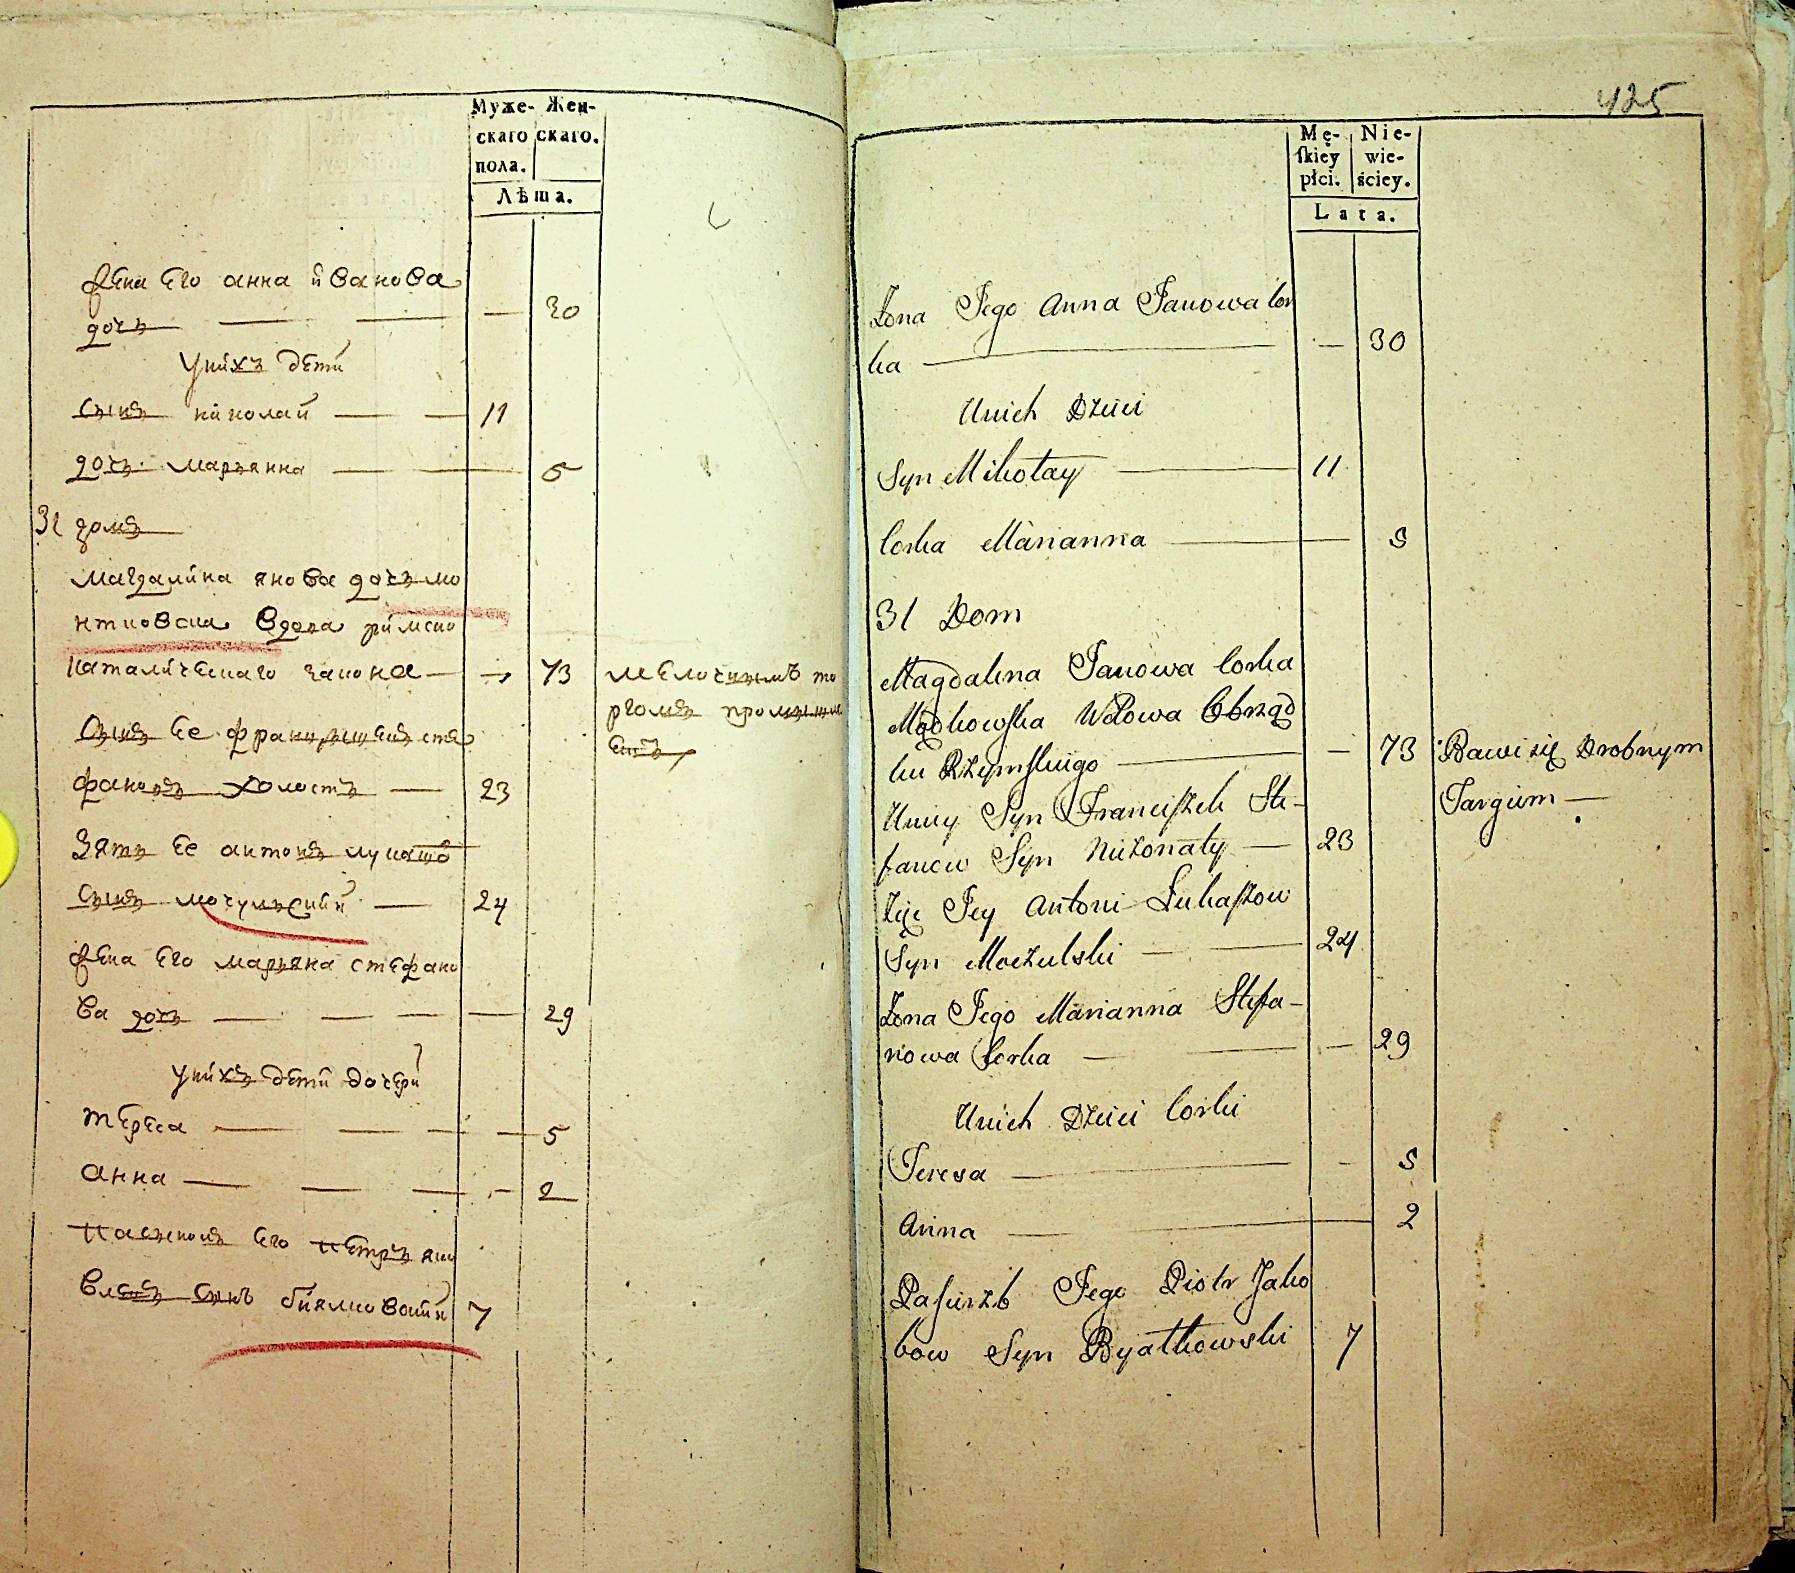 Муже- Жен-
скаго скаго.
пола.
Лѣта.
жена его анна иванова
дочъ — — — 30
у нихъ дети
сынъ николай — — 11
дочъ марьянна — — 5
31 домъ
магдалина янова дочъ мо
нтковска вдова римско
каталическаго закона — — 73 мелочнымъ то
ргомъ промыш
сынъ ее францышекъ сте
фановъ холостъ — 23
зять ее антонъ лукашо
сынъ мочульский — 24
жена его марьяна стефано
ва дочъ — — — — 29
у нихъ дети дочери
тереса — — — — 5
анна — — — — 2
пасынокъ его петръ яко
влевъ сынъ бялковский 7
425
Mę- Nie-
ſkiey wie-
płci. ściey.
Lata.
Zona Jego Anna Janowa Cor
ka — — 30
Unich Dzieci
Syn Mikołay — 11
Corka Marianna — 5
31 Dom
Magdalena Janowa Corka
Mądkowſka Wdowa Obrząd
ku Rzymſkiego — — 73 Bawi się Drobnym
Targiem —
Uniey Syn Franciſzek Ste-
fanow Syn Nieżonaty — 23
Zięć Jey Antoni Łukaſzow
Syn Moczulski — — 24
Zona Jego Marianna Stefa-
nowa Corka — — — 29
Unich Dzieci Corki
Teresa — — 5
Anna — — 2
Paſierzb Jego Piotr Jako
bow Syn Byatkowski 7